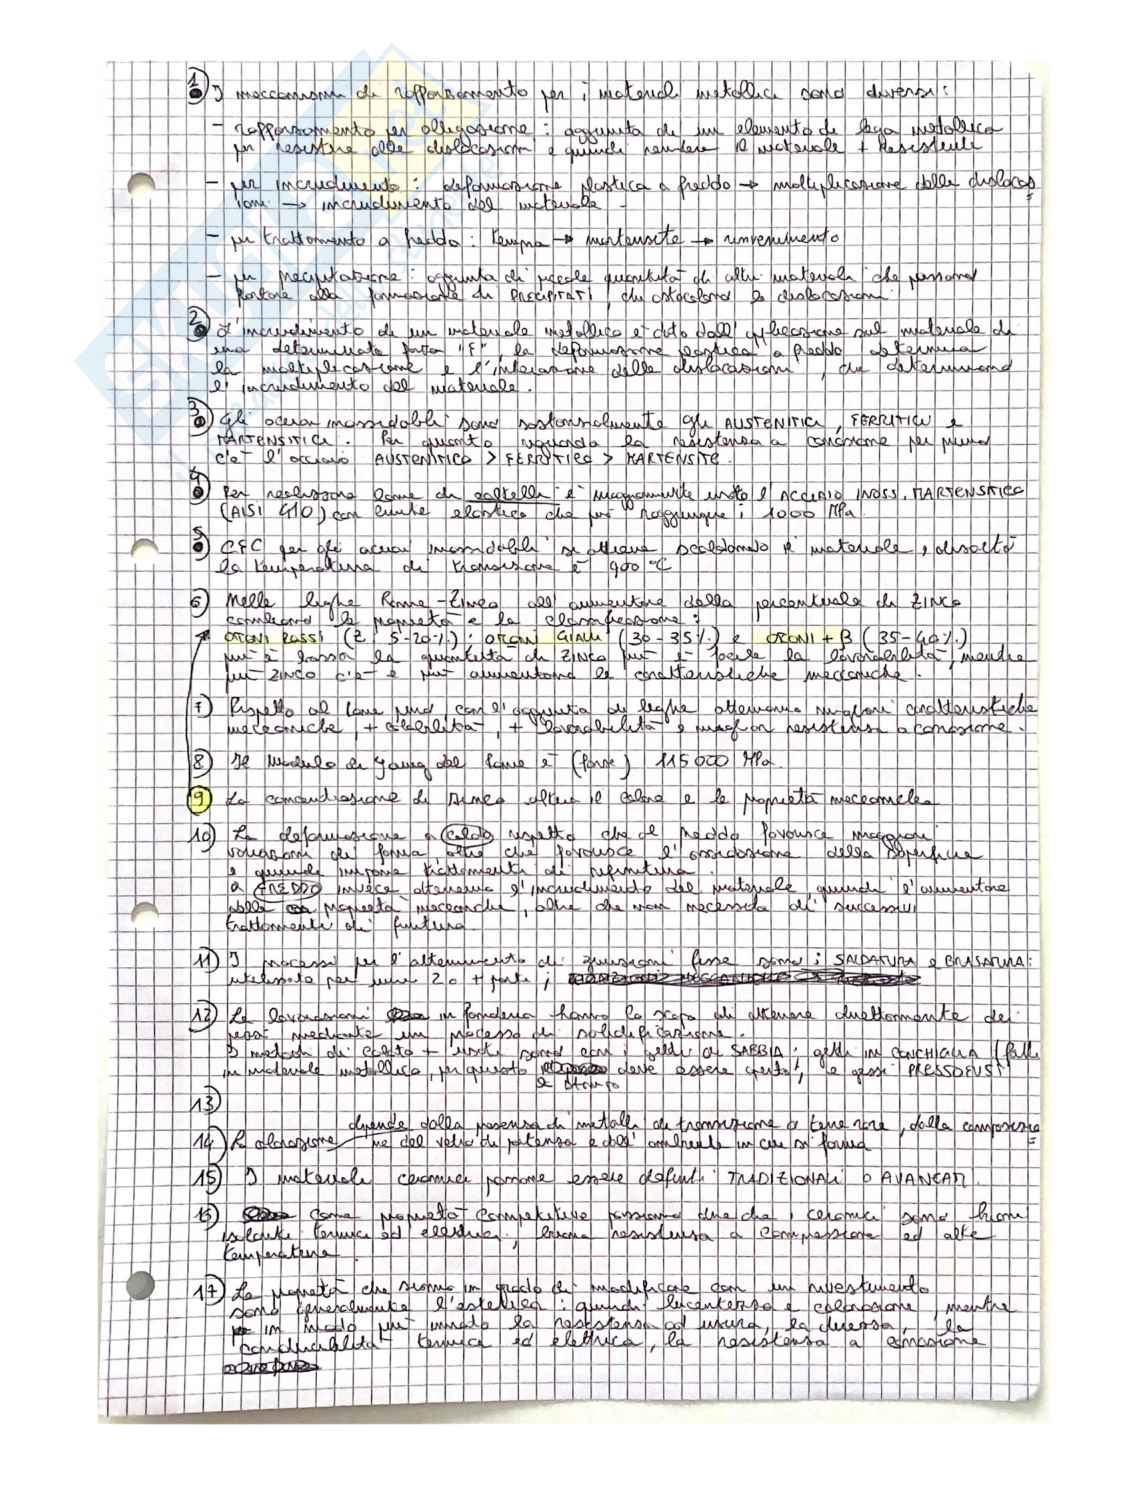 1) I meccanismi di rafforzamento per i materiali metallici sono diversi:
- rafforzamento per alligazione: aggiunta di un elemento di lega metallica
per resistere alle dislocazioni e quindi rendere il materiale + resistente
- per incrudimento: deformazione plastica a freddo → moltiplicazione delle dislocaz
ioni → incrudimento del materiale -
- per trattamento a freddo: tempra → martensite → rinvenimento
- per precipitazione: aggiunta di piccole quantità di altri materiali che possono
portare alla formazione di PRECIPITATI, che ostacolano le dislocazioni.
2) L'incrudimento di un materiale metallico è dato dall'applicazione sul materiale di
una determinata forza "F", la deformazione plastica a freddo determina
la moltiplicazione e l'interazione delle dislocazioni, che determinano
l'incrudimento del materiale.
3) Gli acciai inossidabili sono sostanzialmente gli AUSTENITICI, FERRITICI e
MARTENSITICI. Per quanto riguarda la resistenza a corrosione per primo
c'è l'acciaio AUSTENITICO > FERRITICO > MARTENSITE.
4) Per realizzare lame di coltelli è maggiormente usato l'ACCIAIO INOSS. MARTENSITICO
(AISI 410) con limite elastico che può raggiungere i 1000 MPa
5) CFC per gli acciai inossidabili si ottiene scaldando il materiale,
la temperatura di transizione è 900 °C
6) Nelle leghe Rame-Zinco all'aumentare della percentuale di ZINCO
cambiano le proprietà e la classificazione:
OTTONI ROSSI (Z. 5-20%); OTTONI GIALLI (30-35%) e OTTONI + β (35-40%)
più è bassa la quantità di ZINCO più è facile la lavorabilità, mentre
più ZINCO c'è e più aumentano le caratteristiche meccaniche.
7) Rispetto al rame puro con l'aggiunta di leghe otteniamo migliori caratteristiche
meccaniche, + colabilità, + lavorabilità e maggior resistenza a corrosione.
8) Il modulo di Young del rame è (forse) 115000 MPa.
9) La concentrazione di Zinco altera il colore e le proprietà meccaniche
10) La deformazione a caldo rispetto che al freddo favorisce maggiori
variazioni di forma, oltre che favorisce l'ossidazione della superficie
e quindi impone trattamenti di rifinitura.
a FREDDO invece otteniamo l'incrudimento del materiale, quindi l'aumentare
delle proprietà meccaniche, oltre che non necessita di successivi
trattamenti di finitura.
11) I processi per l'ottenimento di giunzioni fisse sono: SALDATURA e BRASATURA:
utilizzata per unire 2 o + parti;
12) Le lavorazioni in fonderia hanno lo scopo di ottenere direttamente dei
pezzi mediante un processo di solidificazione.
I metodi di colata + usati sono con i getti di SABBIA; getti in CONCHIGLIA (fatti
in materiale metallico, per questo deve essere aperto), e getti PRESSOFUSI
e stampo
13)
14) La colorazione dipende dalla presenza di metalli di transizione o terre rare, dalla composizio
ne del vetro di partenza e dall'ambiente in cui si forma
15) I materiali ceramici possono essere definiti TRADIZIONALI o AVANZATI.
16) come proprietà competitive possiamo dire che i ceramici sono buoni
isolanti termici ed elettrici; buona resistenza a compressione ed alte
temperature.
17) Le proprietà che siamo in grado di modificare con un rivestimento
sono generalmente l'estetica: quindi lucentezza e colorazione, mentre
in modo più mirato la resistenza ad usura, la durezza, la
conducibilità termica ed elettrica, la resistenza a corrosione